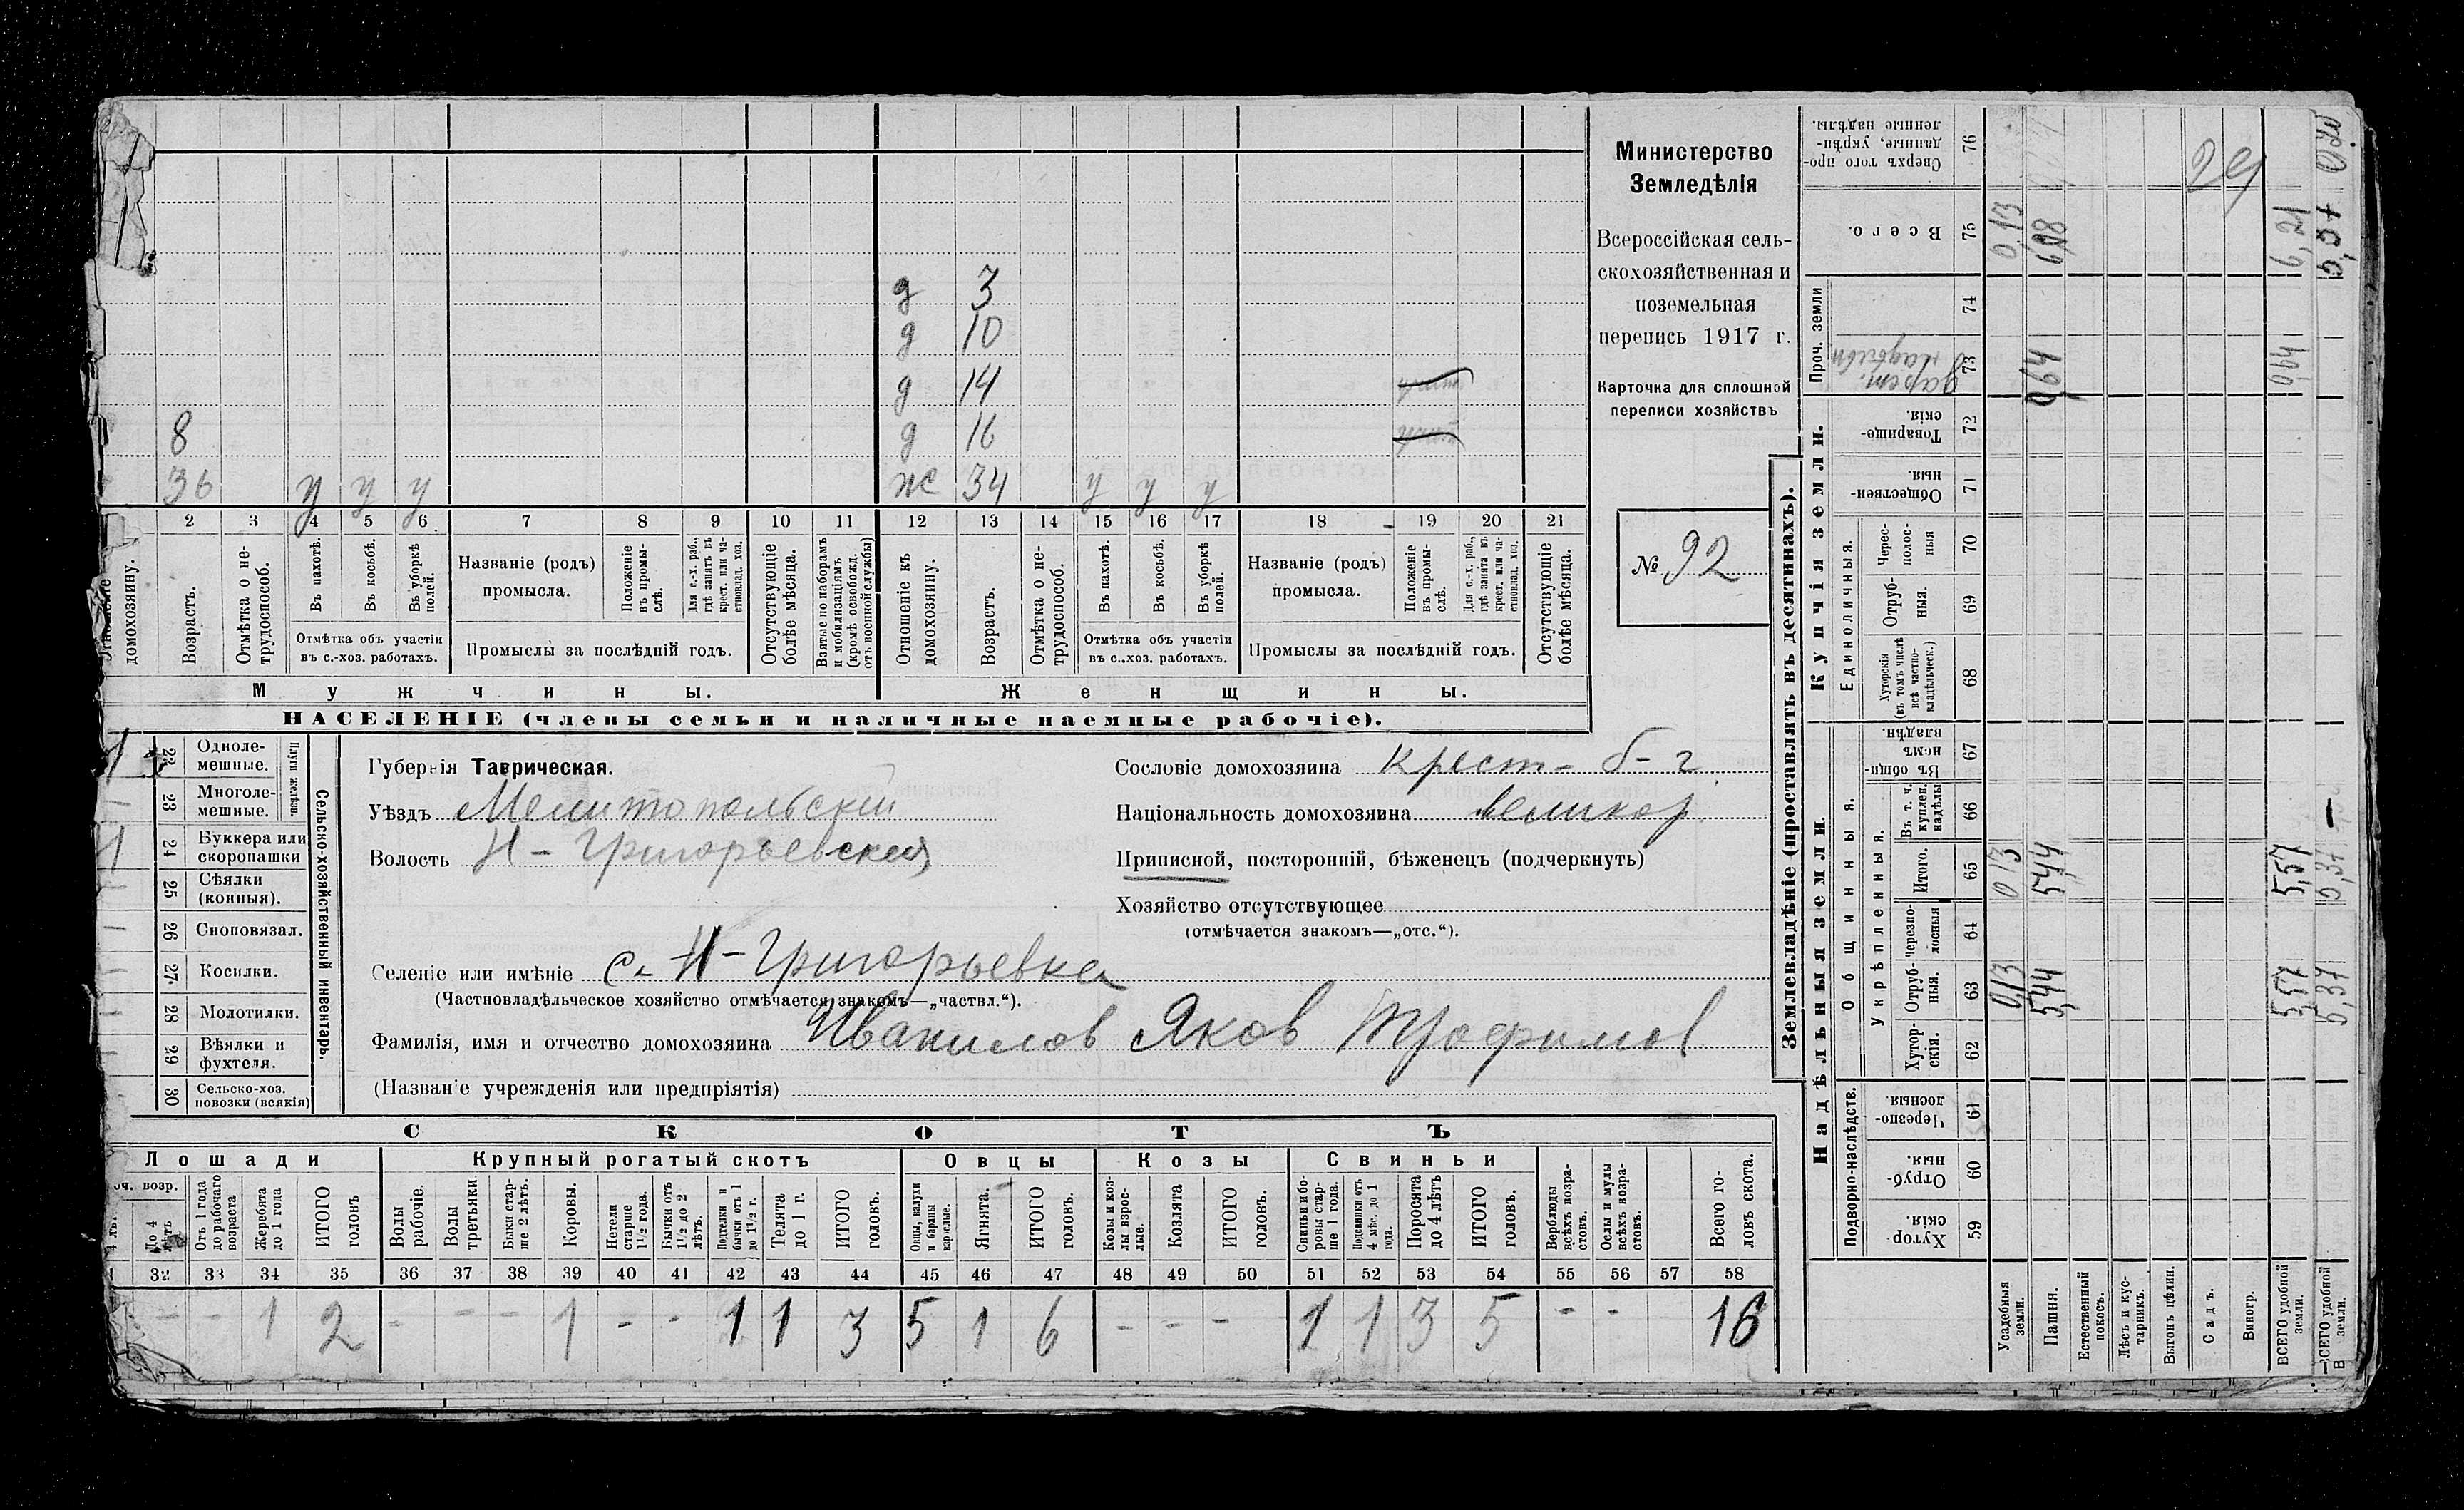 Министерство
Земледѣлія
Всероссійская сель-
скохозяйственная и
поземельная
перепись 1917 г.
Карточка для сплошной
переписи хозяйствъ
№ 92
д 3
д 10
д 14
8 д 16
36 у у у ж 34 у у у
2 3 4 5 6 7 8 9 10 11 12 13 14 15 16 17 18 19 20 21
домохозяину.
Возрастъ.
Отмѣтка о не-
трудоспособ.
Въ пахотѣ.
Въ косьбѣ.
Въ уборкѣ
полей.
Отмѣтка объ участіи
въ с.-хоз. работахъ.
Названіе (родъ)
промысла.
Положеніе
въ промы-
слѣ.
Для с.-х. раб.,
гдѣ занятъ въ
крест. или ча-
стновлад. хоз.
Промыслы за послѣдній годъ.
Отсутствующіе
болѣе мѣсяца.
Взятые по наборамъ
и мобилизаціямъ
(кромѣ освобожд.
отъ военной службы)
Отношеніе къ
домохозяину.
Возрастъ.
Отмѣтка о не-
трудоспособ.
Въ пахотѣ.
Въ косьбѣ.
Въ уборкѣ
полей.
Отмѣтка объ участіи
въ с..хоз. работахъ.
Названіе (родъ)
промысла.
Положеніе
въ промы-
слѣ.
Для с.-х. раб.,
гдѣ занята въ
крест. или ча-
стновлад. хоз.
Промыслы за послѣдній годъ.
Отсутствующіе
болѣе мѣсяца.
Мужчины.
Женщины.
НАСЕЛЕНІЕ (члены семьи и наличные наемные рабочіе).
22 Одноле-
мешные.
23 Многоле-
мешные.
Плуги желѣзн.
1 24 Буккера или
скоропашки
25 Сѣялки
(конныя).
26 Сноповязал.
27 Косилки.
28 Молотилки.
29 Вѣялки и
фухтеля.
30 Сельско-хоз.
повозки (всякія)
Сельско-хозяйственный инвентарь.
Губернія Таврическая.
Уѣздъ Мелитопольскій
Волость Н-Григорьевская
Сословіе домохозяина крест- б-г
Національность домохозяина великор.
Приписной, посторонній, бѣженецъ (подчеркнуть)
Хозяйство отсутствующее
(отмѣчается знакомъ—„отс.“).
Селеніе или имѣніе с. Н-Григорьевка
(Частновладѣльческое хозяйство отмѣчается знакомъ—„частвл.“).
Фамилія, имя и отчество домохозяина Иванилов Яков Трофимов
(Названіе учрежденія или предпріятія)
СКОТЪ
Лошади
Крупный рогатый скотъ
Овцы
Козы
Свиньи
До 4
лѣтъ
Отъ 1 года
до рабочаго
возраста
Жеребята
до 1 года
ИТОГО
головъ
Волы
рабочіе.
Волы
третьяки
Быки стар-
ше 2 лѣтъ.
Коровы.
Нетели
старше
1½ года.
Бычки отъ
1½ до 2
лѣтъ.
Подтелки и
бычки отъ 1
до 1½ г.
Телята
до 1 г.
ИТОГО
головъ.
Овцы, валухи
и бараны
взрослые.
Ягнята.
ИТОГО
головъ.
Козы и коз-
лы взрос-
лые.
Козлята
ИТОГО
головъ.
Свиньи и бо-
ровы стар-
ше 1 года.
Подсвинки отъ
4 мѣс. до 1
года.
Поросята
до 4 лѣтъ
ИТОГО
головъ.
Верблюды
всѣхъ возра-
стовъ.
Ослы и мулы
всѣхъ возра-
стовъ.
Всего го-
ловъ скота.
32 33 34 35 36 37 38 39 40 41 42 43 44 45 46 47 48 49 50 51 52 53 54 55 56 57 58
- - 1 2 - - - 1 - - 1 1 3 5 1 6 - - - 1 1 3 5 - - 16
Землевладѣніе (проставлять въ десятинахъ).
Надѣльныя земли.
Купчія земли.
Проч. земли
Подворно-наслѣдств.
Общинныя.
Укрѣпленныя.
Единоличныя.
Хутор-
скія. 59
Отруб-
ныя. 60
Черезпо-
лосныя 61
Хутор-
скія. 62
Отруб-
ныя. 63
Черезпо-
лосныя 64
Итого. 65
Въ т. ч.
куплен.
надѣлы 66
Въ общи-
номъ
владѣн. 67
Хуторскія
(въ томъ числѣ
всѣ частно-
владѣльческ.) 68
Отруб-
ныя. 69
Черес-
полос-
ныя 70
Обществен-
ныя. 71
Товарище-
скія. 72
73
74
Всего. 75
Сверхъ того про-
данные, укрѣп-
ленные надѣлы. 76
Усадебныя
земли. 0,13 013 0,13
Пашня. 5,44 544 064 6,08
Естественный
покосъ.
Лѣсъ и кус-
тарникъ.
Выгонъ цѣлин.
Садъ.
Виногр.
ВСЕГО удобной
земли. 5,57 5,57 064 6,21
29